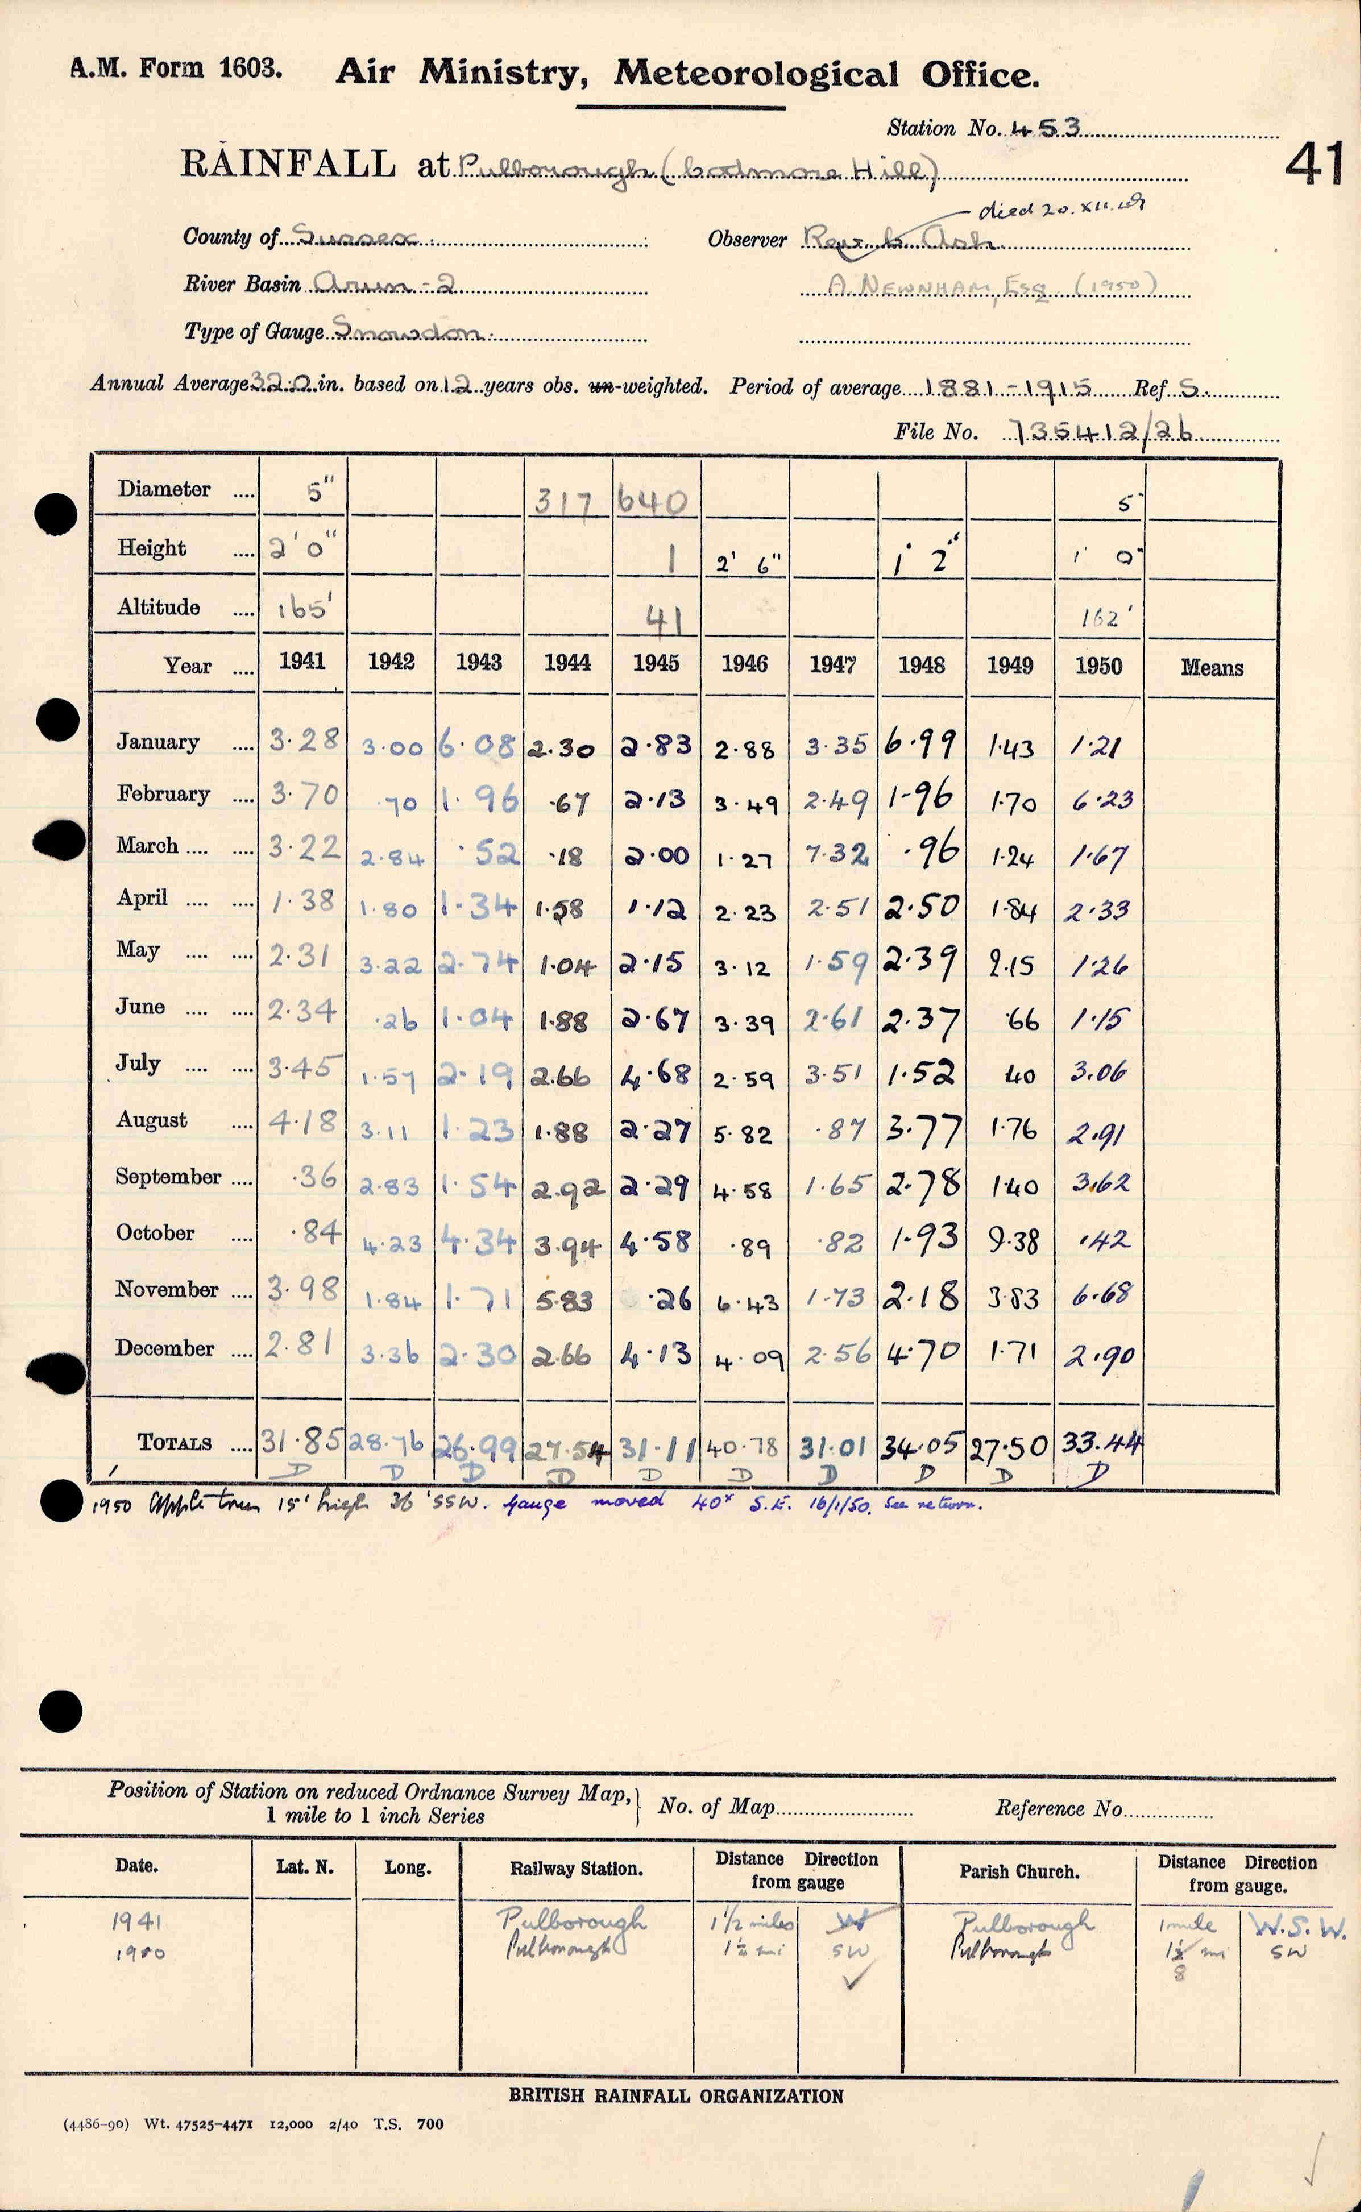 A.M. Form 1603. Air Ministry, Meteorological Office.
Station No. 453
41
RAINFALL at Pulborough (Codmore Hill)
died 20.XII.49
County of Sussex. Observer Rev. C. Ash
River Basin Arun - 2 A. NEWNHAM, Esq (1950)
Type of Gauge Snowdon.
Annual Average 32.0 in. based on 12 years obs. un-weighted. Period of average 1881-1915 Ref. S.
File No. 735412/26
Diameter .... 5" 317 640 5"
Height .... 2' 0" 1 2' 6" 1' 2" 1' 0"
Altitude .... 165' 41 162'
Year .... 1941 1942 1943 1944 1945 1946 1947 1948 1949 1950 Means
January .... 3.28 3.00 6.08 2.30 2.83 2.88 3.35 6.99 1.43 1.21
February .... 3.70 .70 1.96 .67 2.13 3.49 2.49 1.96 1.70 6.23
March .... .... 3.22 2.84 .52 .18 2.00 1.27 7.32 .96 1.24 1.67
April .... .... 1.38 1.80 1.34 1.58 1.12 2.23 2.51 2.50 1.84 2.33
May .... .... 2.31 3.22 2.74 1.04 2.15 3.12 1.59 2.39 2.15 1.26
June .... .... 2.34 .26 1.04 1.88 2.67 3.39 2.61 2.37 .66 1.15
July .... .... 3.45 1.57 2.19 2.66 4.68 2.59 3.51 1.52 40 3.06
August .... 4.18 3.11 1.23 1.88 2.27 5.82 .87 3.77 1.76 2.91
September .... .36 2.83 1.54 2.92 2.29 4.58 1.65 2.78 1.40 3.62
October .... .84 4.23 4.34 3.94 4.58 .89 .82 1.93 9.38 .42
November .... 3.98 1.84 1.71 5.83 .26 6.43 1.73 2.18 3.83 6.68
December .... 2.81 3.36 2.30 2.66 4.13 4.09 2.56 4.70 1.71 2.90
TOTALS .... 31.85 28.76 26.99 27.54 31.11 40.78 31.01 34.05 27.50 33.44
D D D D D D D D D D
1950 Apple tree 15' high 36' SSW. Gauge moved 40x S.E. 16/1/50. See return.
Position of Station on reduced Ordnance Survey Map,
1 mile to 1 inch Series
No. of Map Reference No.
Date. Lat. N. Long. Railway Station. Distance Direction from gauge Parish Church. Distance Direction from gauge.
1941 Pulborough 1 1/2 miles W Pulborough 1 mile W.S.W.
1950 Pulborough 1 1/2 mi SW Pulborough mi SW
8
BRITISH RAINFALL ORGANIZATION
(4486-90) Wt. 47525-4471 12,000 2/40 T.S. 700